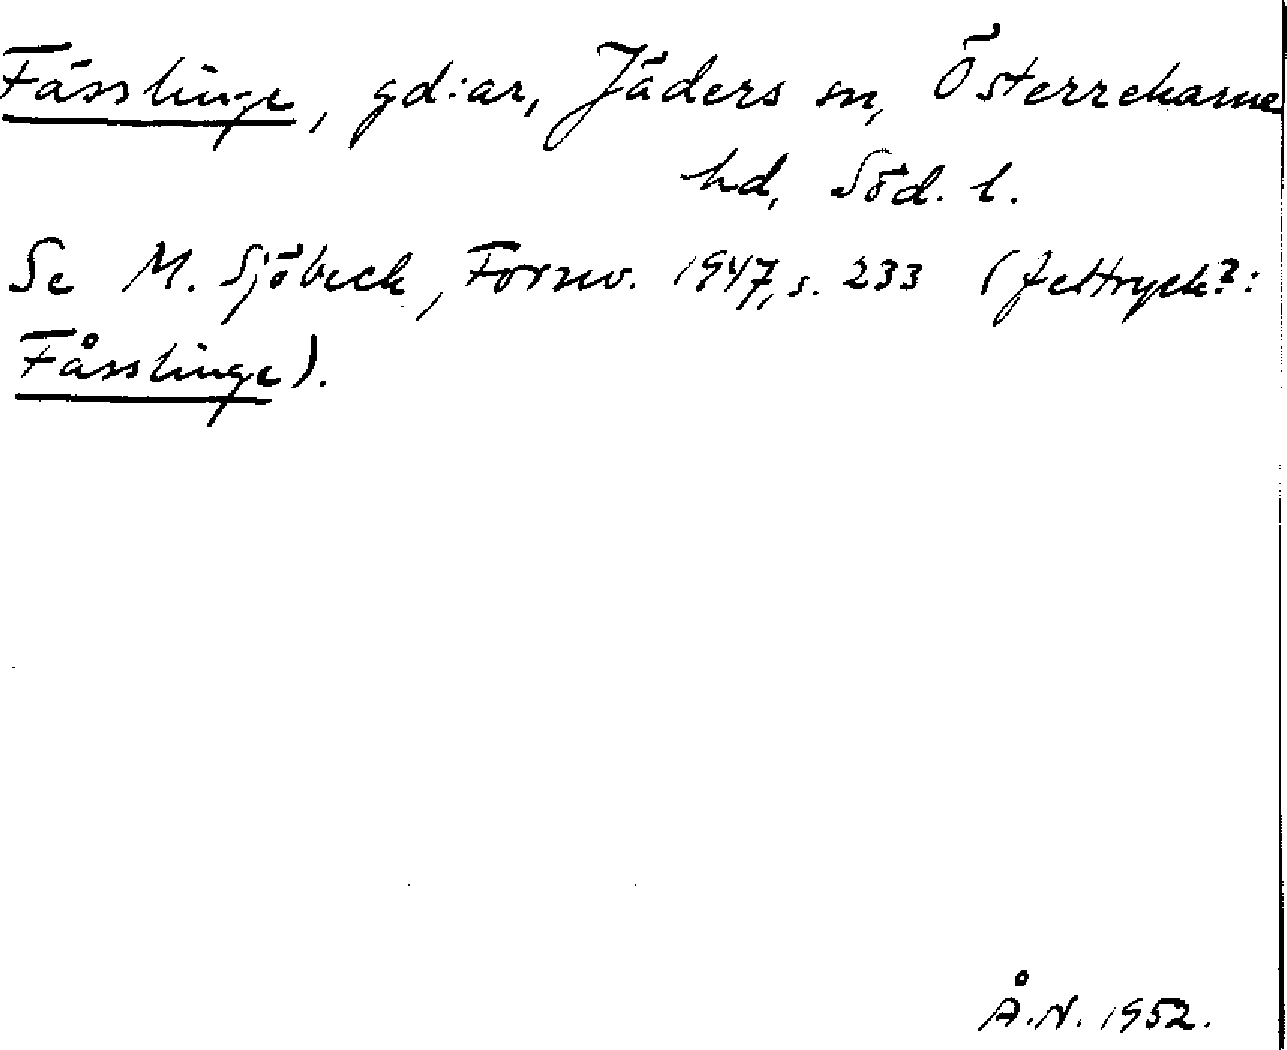 Fässlinge, gd:ar, Jäders sn, Österrekarne
hd, Söd. l.
Se M. Sjöbeck, Fornv. 1947, s. 233 (feltryck?:
Fåsslinge).
Å.N. 1952.